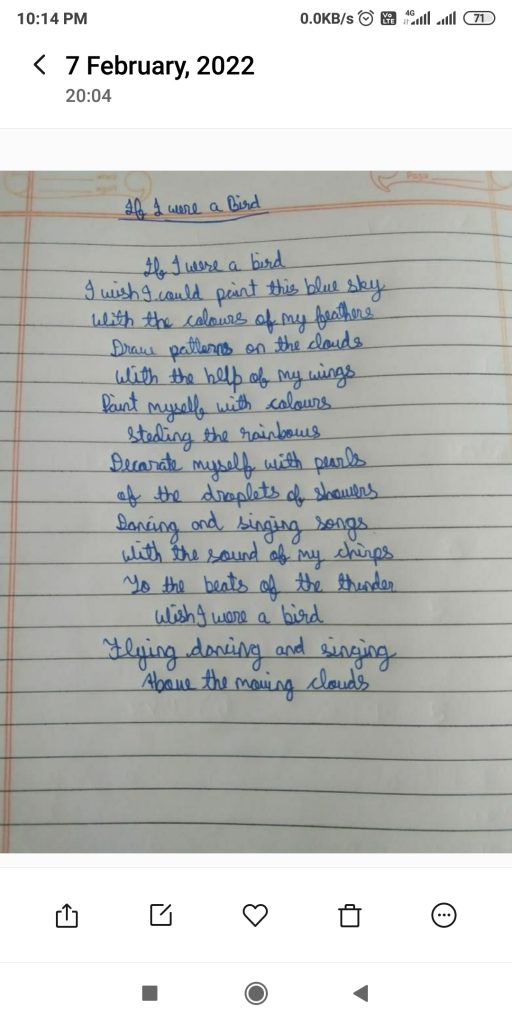 10:14 PM
0.0KB/s
Vo
LTE
4G
71
7 February, 2022
20:04
Page
If I were a Bird
If I were a bird
I wish I could paint this blue sky
with the colours of my feathers
Draw patterns on the clouds
with the help of my wings
Paint myself with colours
stealing the rainbows
Decorate myself with pearls
of the droplets of showers
Dancing and singing songs
with the sound of my chirps
To the beats of the thunder
Wish I were a bird
Flying dancing and singing
Above the moving clouds